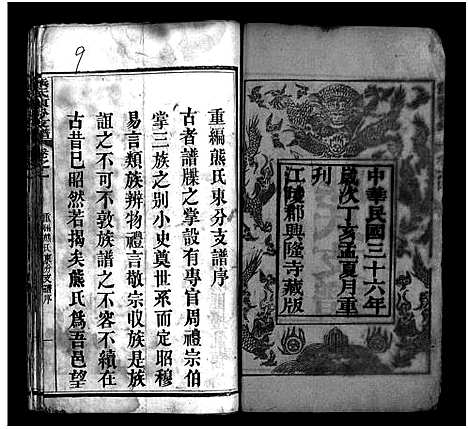 中華民國三十六年
歲次丁亥孟夏月重
刊
江陵郡興隆寺藏版
重編熊氏東分支譜序
古者譜牒之掌設有專官周禮宗伯
掌三族之别小史奠世系而定昭穆
易言類族辨物禮言敬宗收族是族
誼之不可不敦族譜之不容不續在
古昔已昭然若揭矣熊氏爲吾邑望
重編熊氏東分支譜序
一
9